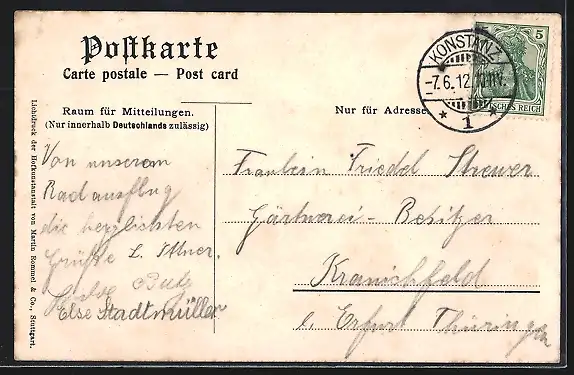 Postkarte
Carte postale — Post card
Raum für Mitteilungen.
(Nur innerhalb Deutschlands zulässig)
Nur für Adresse
KONSTANZ
-7.6.12.
* 1 *
5
DEUTSCHES REICH
Von unserem
Radausflug
die herzlichsten
Grüße L. Ittner.
Butz
Else Stadtmüller
Fräulein Friedel Strewer
Gärtnerei-Besitzer
Kranichfeld
b. Erfurt Thüringen
Lichtdruck der Hofkunstanstalt von Martin Rommel & Co., Stuttgart.